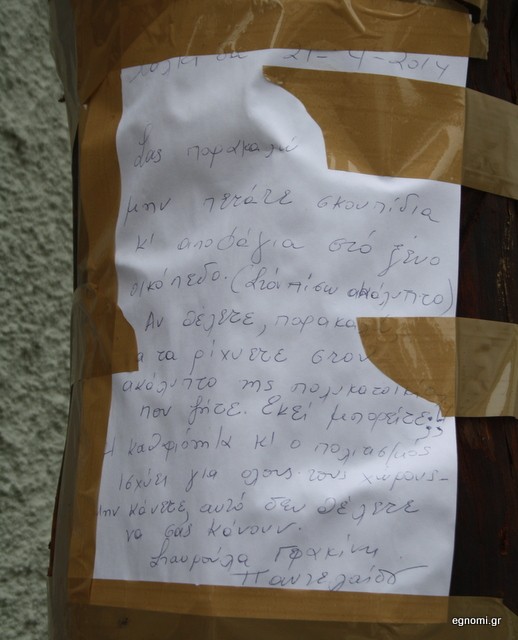 21-4-2014
Σας παρακαλώ
μην πετάτε σκουπίδια
κί αποφάγια στό ξένο
οικόπεδο. (Στό πίσω ακάλυπτο)
Αν θέλετε, παρακα
α τα ρίχνετε στον
ακάλυπτο της πολυκατοικι
που ζήτε. Εκεί μπορείτε;!!
Η καθαριότητα κί ο πολιτισμός
ισχύει για όλους τους χώρους-
μην κάνετε αυτό δεν θέλετε
να σας κάνουν.
Σταυρούλα
egnomi.gr